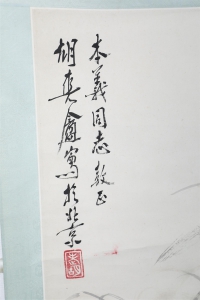 本義同志教正
胡爽盦寫於北京